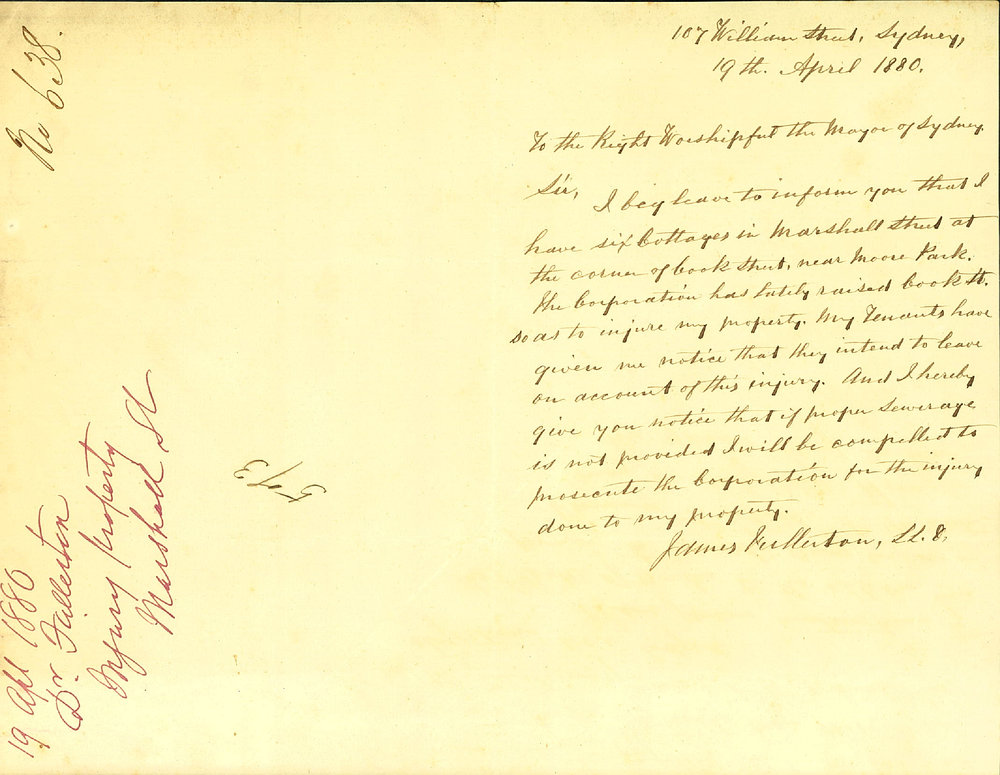 No 638.
19 Apl 1880
Dr Fullerton
Injury property
Marshall St
107 William Street, Sydney,
19th. April 1880.
To the Right Worshipful the Mayor of Sydney
Sir,
I beg leave to inform you that I
have six Cottages in Marshall Street at
the corner of Cook Street, near Moore Park.
The Corporation has lately raised Cook St.
so as to injure my property. My Tenants have
given me notice that they intend to leave
on account of this injury. And I hereby
give you notice that if proper Sewerage
is not provided I will be compelled to
prosecute the Corporation for the injury
done to my property.
James Fullerton, LL.D.